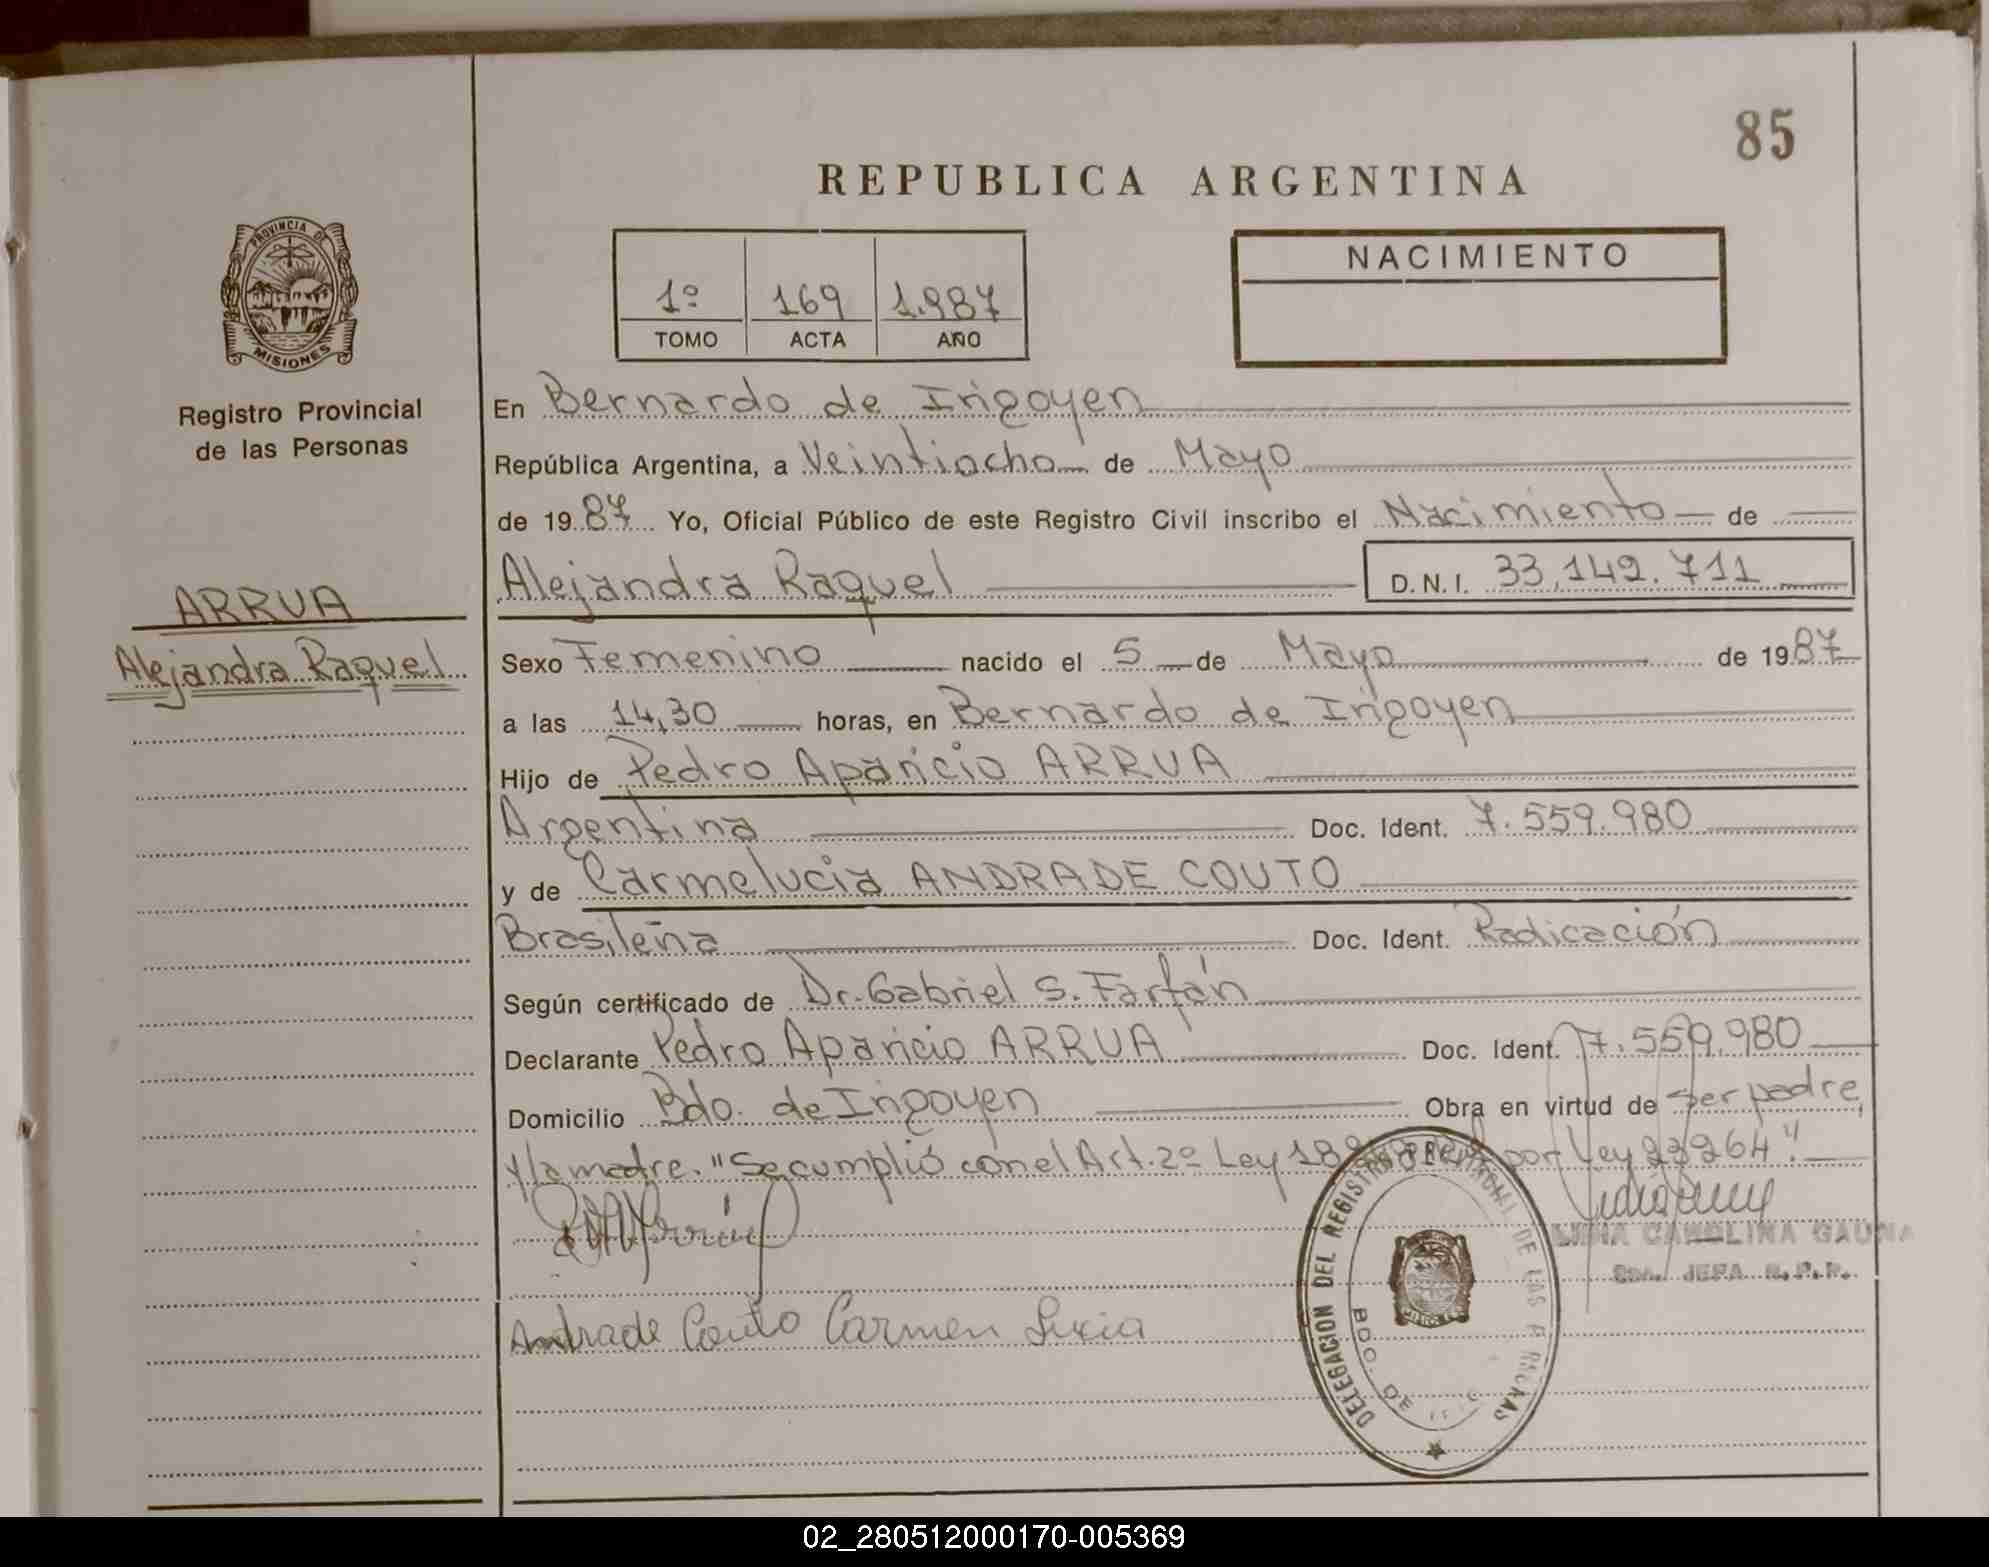 85
REPUBLICA ARGENTINA
PROVINCIA DE
MISIONES
Registro Provincial
de las Personas
1º 169 1.987
TOMO ACTA AÑO
NACIMIENTO
En Bernardo de Irigoyen
República Argentina, a Veintiocho de Mayo
de 19 87 Yo, Oficial Público de este Registro Civil inscribo el Nacimiento de
Alejandra Raquel D.N.I. 33.142.711
ARRUA
Alejandra Raquel
Sexo Femenino nacido el 5 de Mayo de 19 87
a las 14,30 horas, en Bernardo de Irigoyen
Hijo de Pedro Aparicio ARRUA
Argentina Doc. Ident. 7.559.980
y de Carmelucia ANDRADE COUTO
Brasileña Doc. Ident. Radicación
Según certificado de Dr. Gabriel S. Farfán
Declarante Pedro Aparicio ARRUA Doc. Ident. 7.559.980
Domicilio Bdo. de Irigoyen Obra en virtud de ser padre
y la madre. "Se cumplió con el Art. 2º Ley por Ley 23264"
CAROLINA GAUNA
JEFA R.P.P.
Andrade Couto Carmen Lucia
DELEGACION DEL REGISTRO PROVINCIAL DE LAS PERSONAS
BDO. DE
02_280512000170-005369